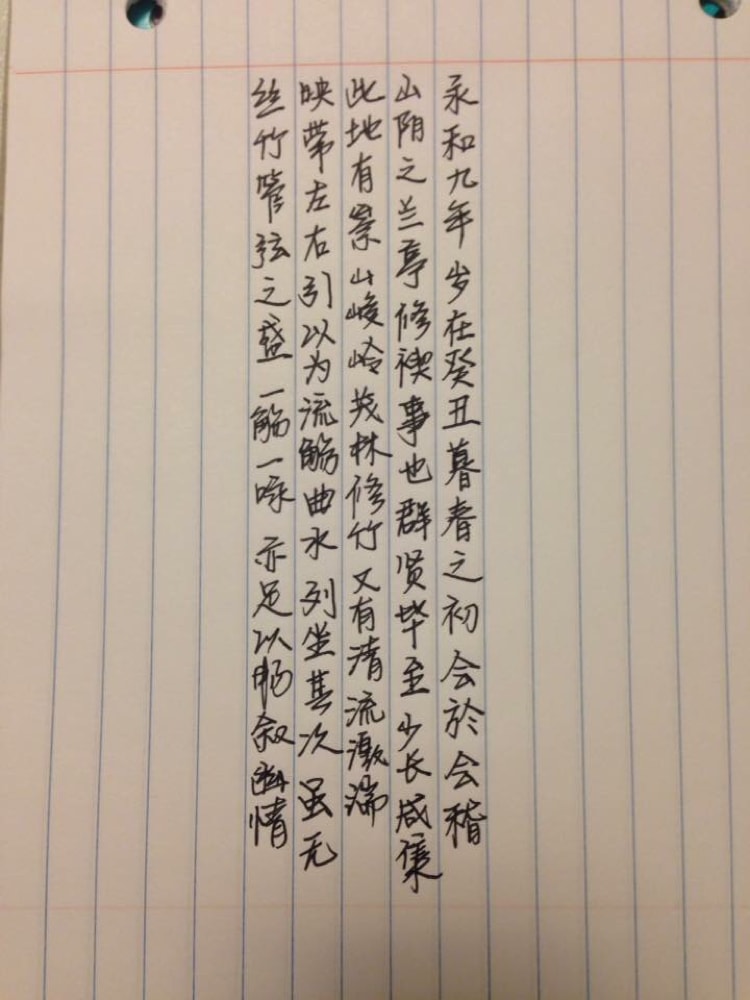 永和九年岁在癸丑暮春之初会於会稽
山阴之兰亭修禊事也群贤毕至少长咸集
此地有崇山峻岭茂林修竹又有清流激湍
映带左右引以为流觞曲水列坐其次虽无
丝竹管弦之盛一觞一咏亦足以畅叙幽情